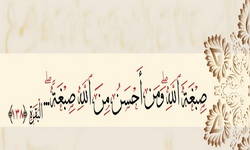 صِبْغَةَ ٱللَّهِ ۖ وَمَنْ أَحْسَنُ مِنَ ٱللَّهِ صِبْغَةً ۖ ... الْبَقَرَةِ ﴿١٣٨﴾